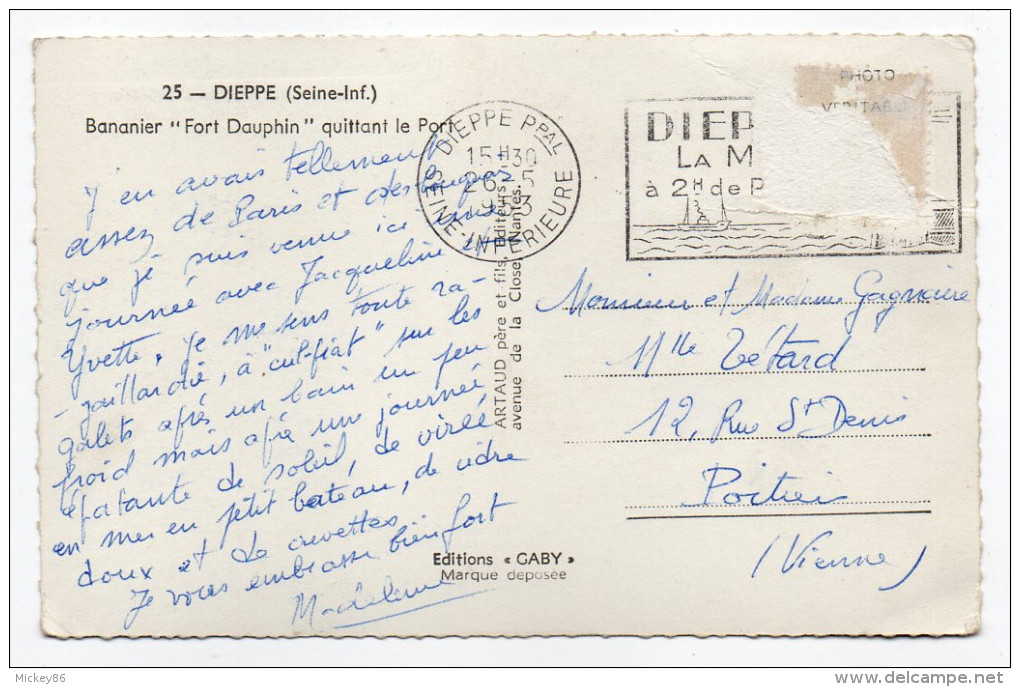 25 — DIEPPE (Seine-Inf.)
Bananier "Fort Dauphin" quittant le Port
J'en avais tellement
assez de Paris et des
que je suis venue ici une
journée avec Jacqueline et
Yvette. Je me sens toute ra-
-gaillardie, à "cul-plat" sur les
galets après un bain un peu
froid mais après une journée
épatante de soleil, de virée
en mer en petit bateau, de cidre
doux et de crevettes.
Je vous embrasse bien fort
Madeleine
DIEPPE PPAL
15H30
26-5
1953
SEINE-INFERIEURE
ARTAUD père et fils, Editeurs
avenue de la Close, Nantes.
Editions « GABY »
Marque déposée
PHOTO
VERITAB
DIEP
LA M
à 2H de P
Monsieur et Madame Gagnaire
Mlle Tétard
12, Rue St Denis
Poitiers
(Vienne)
Mickey86
delcampe.net